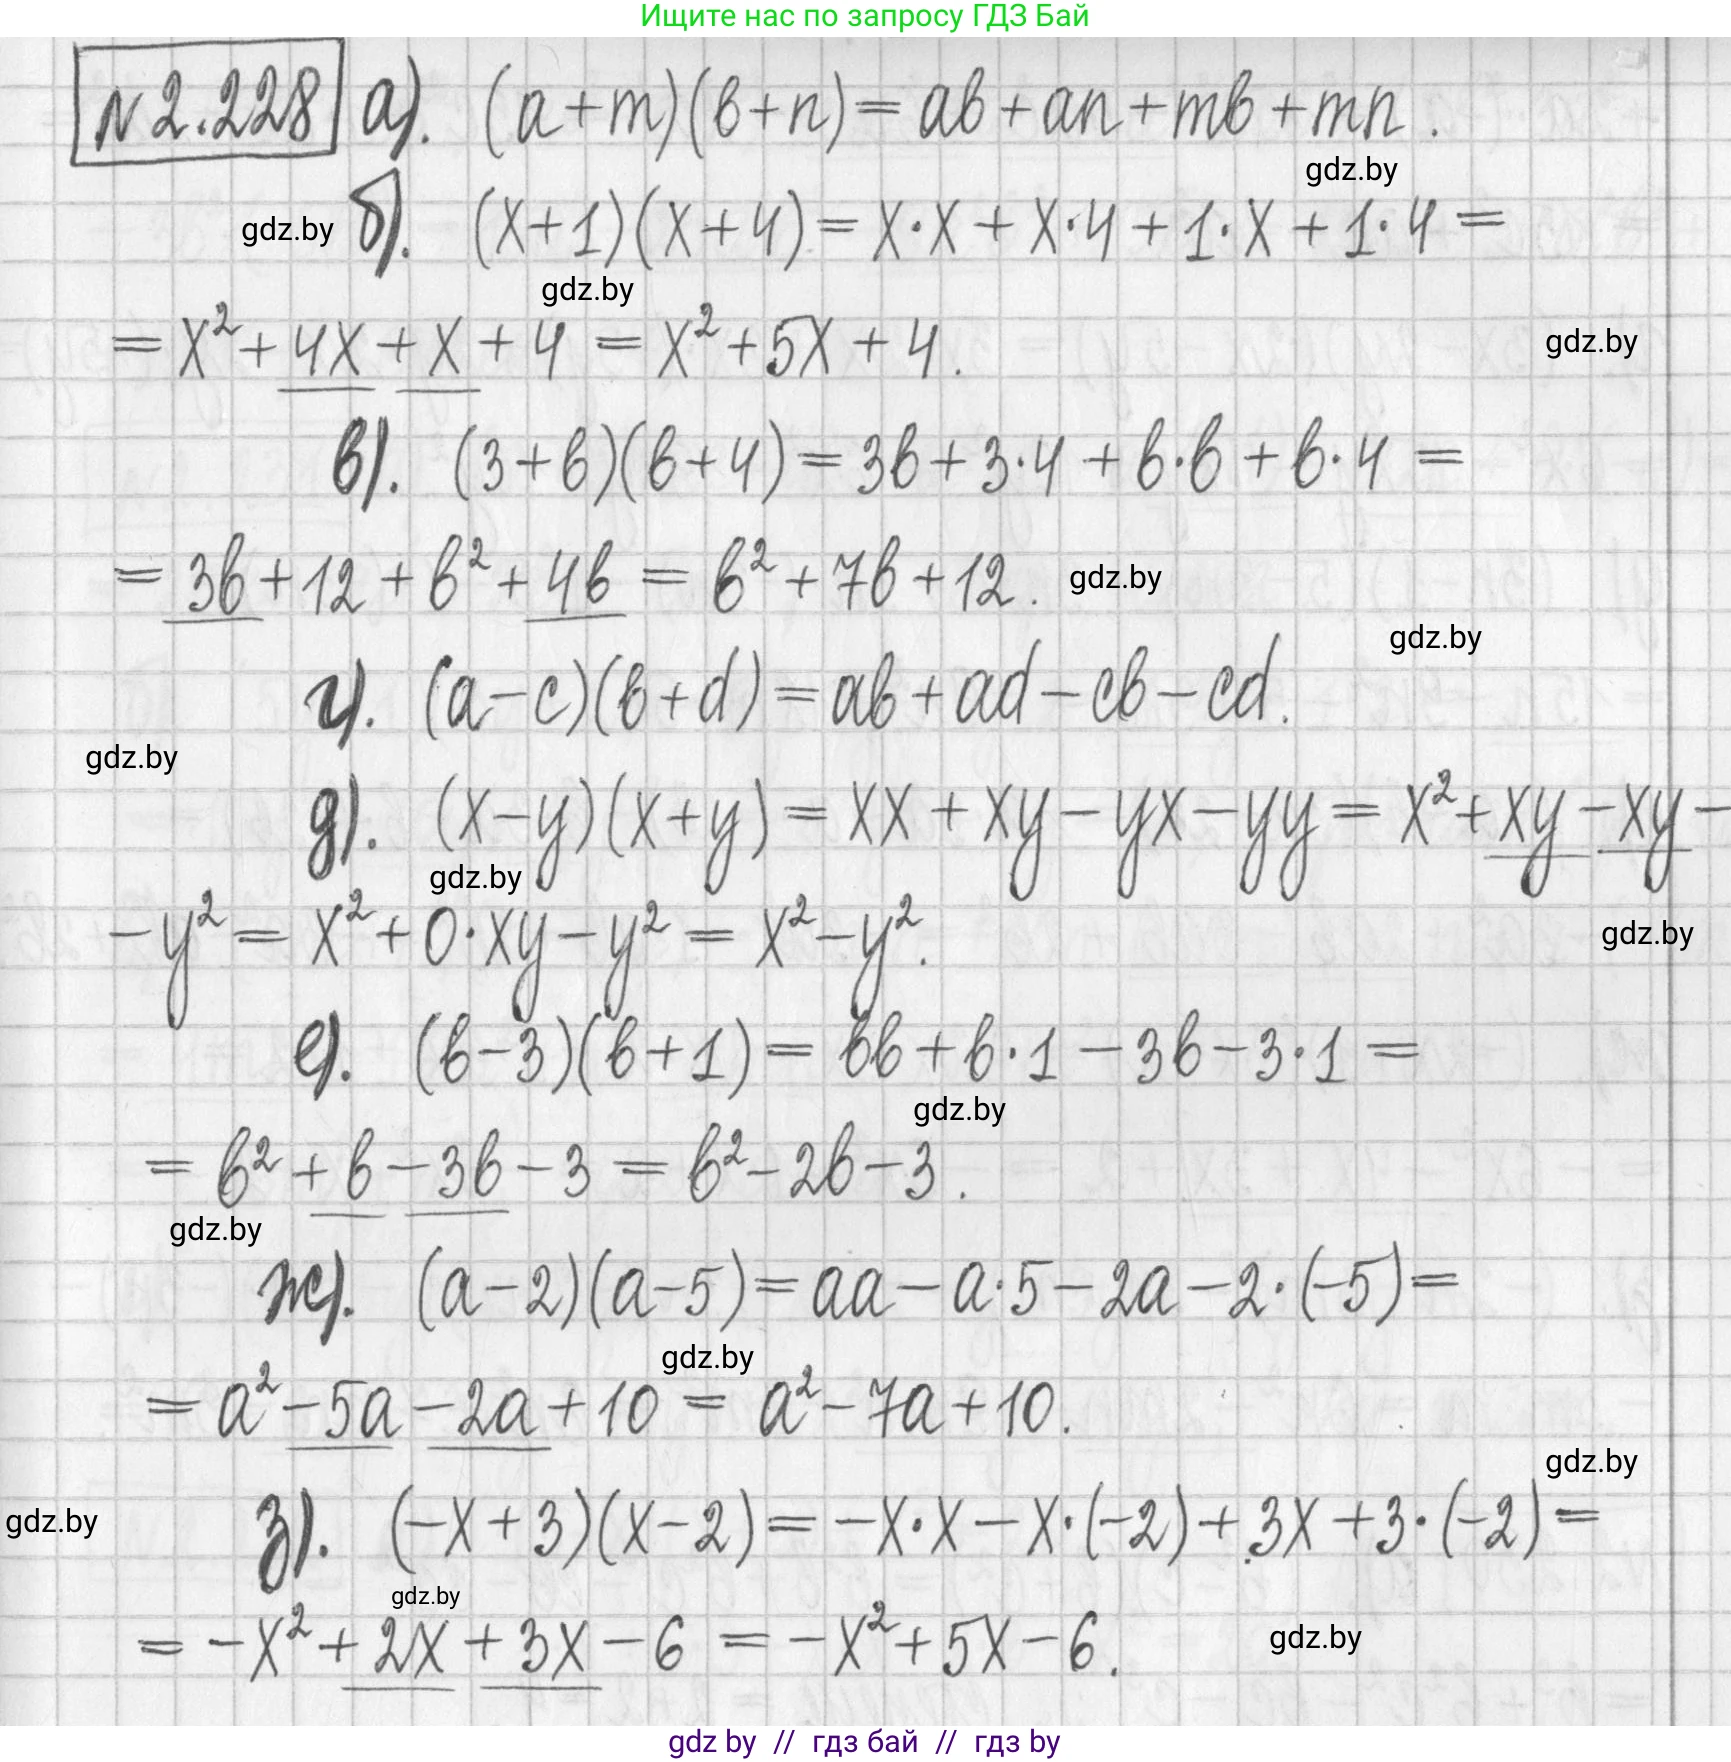 Ищите нас по запросу ГДЗ Бай
№ 2.228 а). (a+m)(b+n)=ab+an+mb+mn.
gdz.by
gdz.by б). (x+1)(x+4)=x·x+x·4+1·x+1·4=
gdz.by
=x²+4x+x+4=x²+5x+4. gdz.by
в). (3+b)(b+4)=3b+3·4+b·b+b·4=
=3b+12+b²+4b=b²+7b+12. gdz.by
gdz.by
г). (a-c)(b+d)=ab+ad-cb-cd.
gdz.by
д). (x-y)(x+y)=xx+xy-yx-yy=x²+xy-xy-
gdz.by
-y²=x²+0·xy-y²=x²-y². gdz.by
е). (b-3)(b+1)=bb+b·1-3b-3·1=
gdz.by
=b²+b-3b-3=b²-2b-3.
gdz.by
ж). (a-2)(a-5)=aa-a·5-2a-2·(-5)=
gdz.by
=a²-5a-2a+10=a²-7a+10.
gdz.by
gdz.by з). (-x+3)(x-2)=-x·x-x·(-2)+3x+3·(-2)=
gdz.by
=-x²+2x+3x-6=-x²+5x-6. gdz.by
gdz by // гдз бай // гдз by